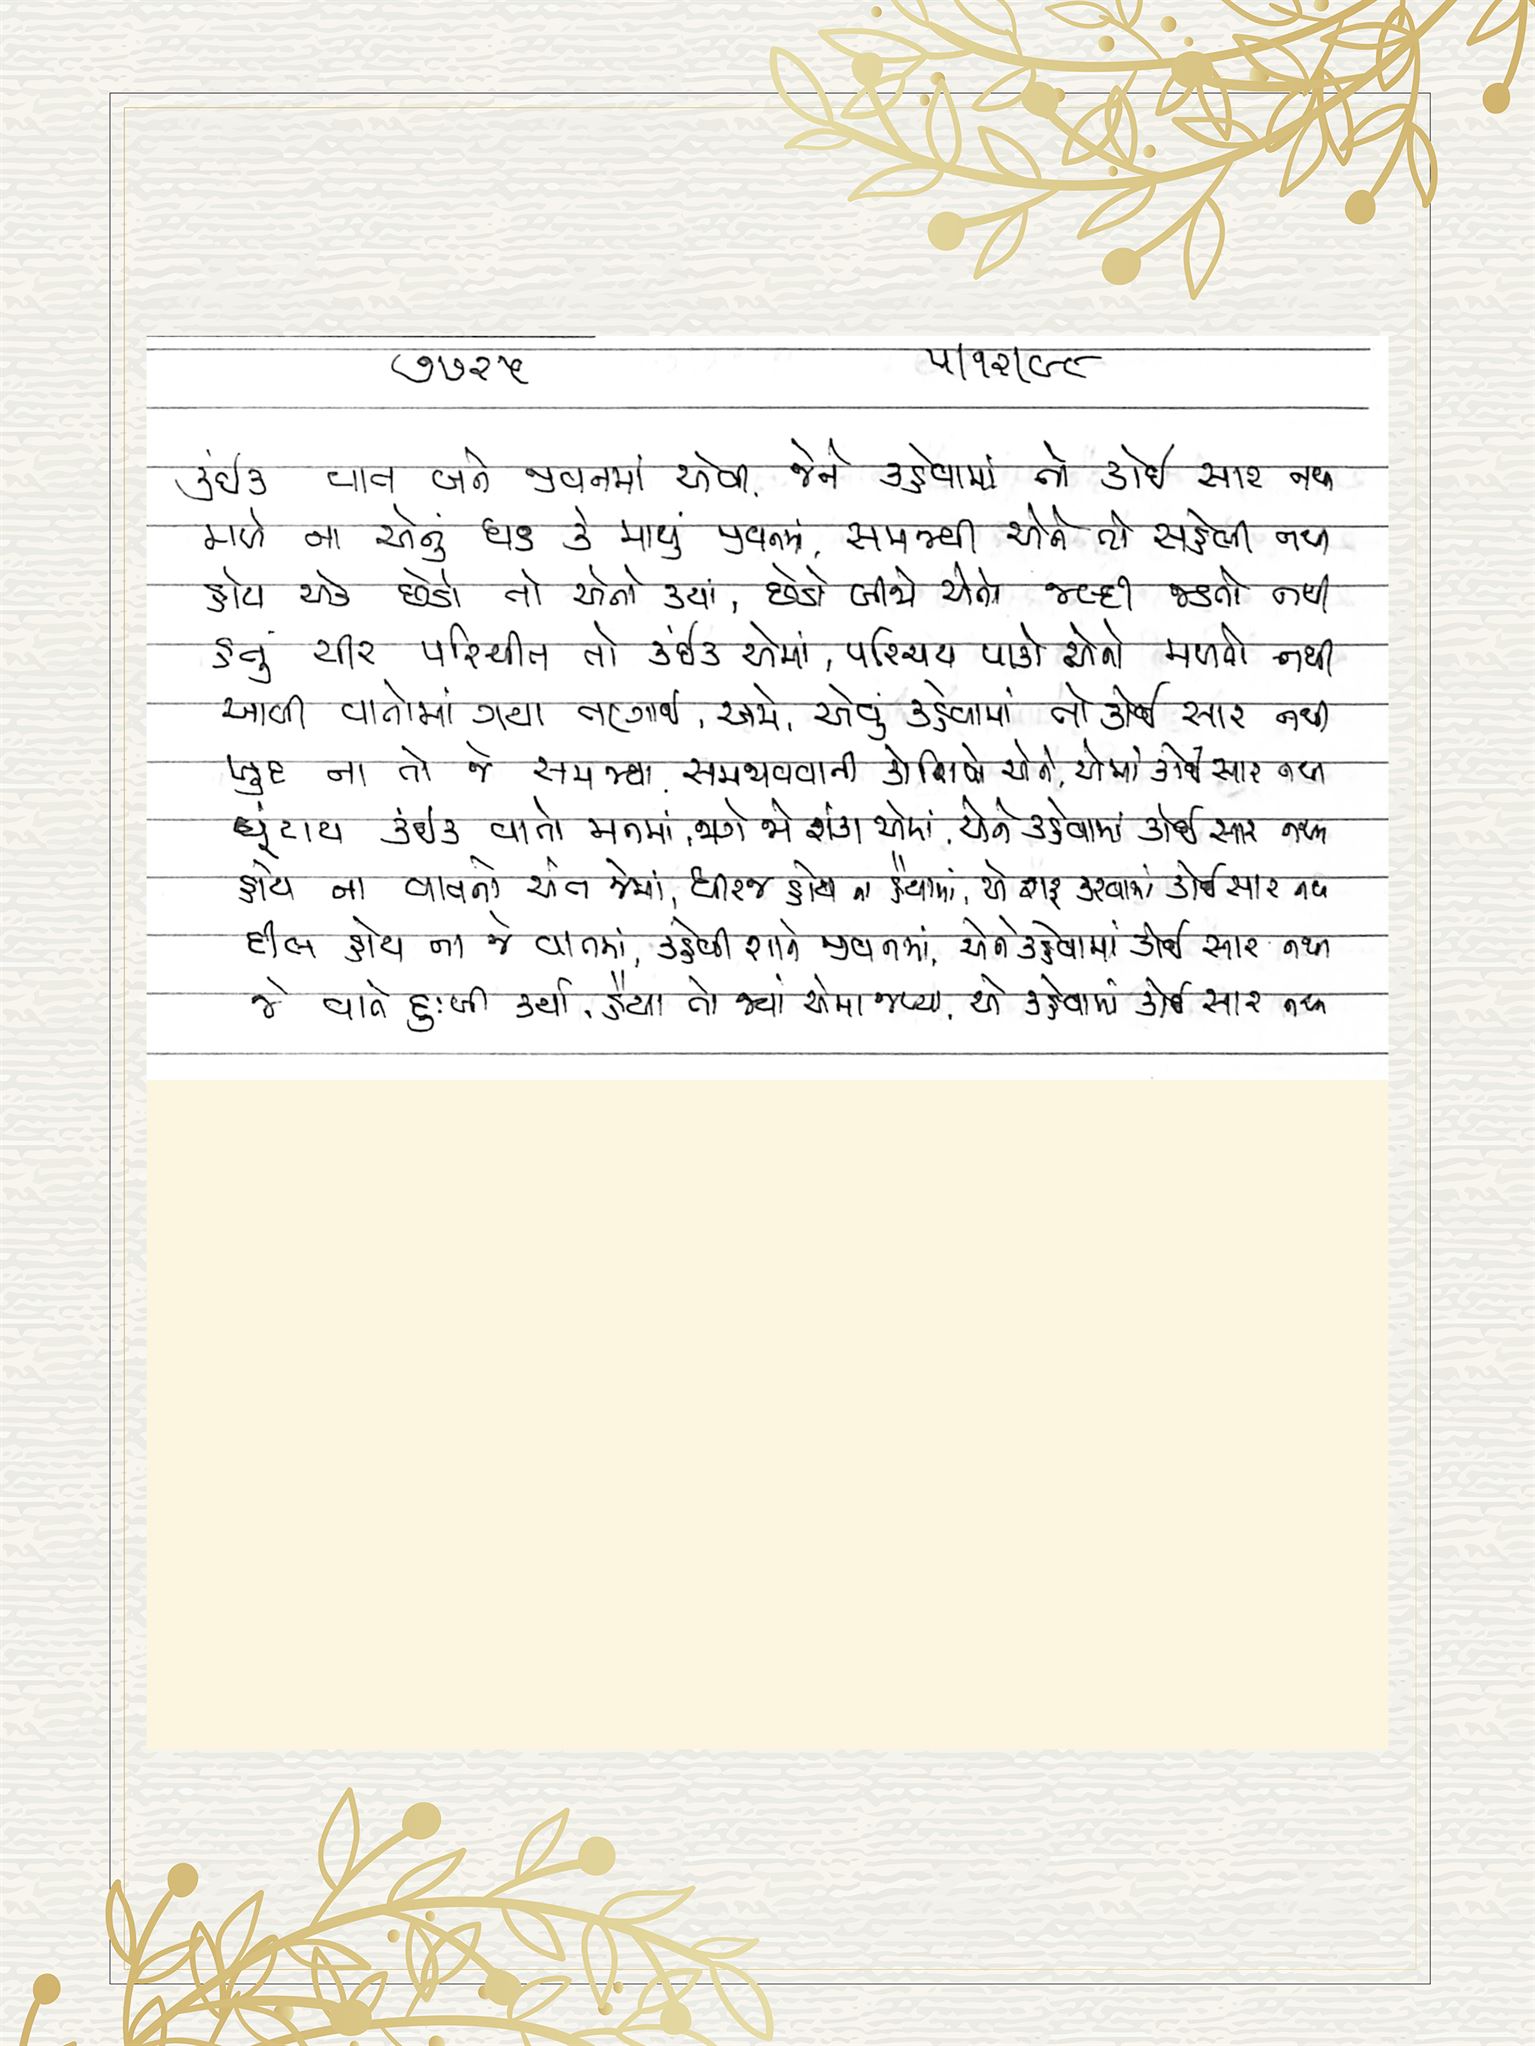 ૭૭૨૫ ૫/૧૨/૯૮
કંઈક વાત બને જીવનમાં એવી, જેને કહેવામાં તો કોઈ સાર નથી
મળે ના એનું ધડ કે માથું જીવનમાં, સમજવી એને તો સહેલી નથી
હોય એક છેડો તો એનો ક્યાં, છેડો બીજો એનો જલ્દી જડતો નથી
હતું ચીર પરિચીત તો કંઈક એમાં, પરિચય પાકો એનો મળતો નથી
આવી વાતોમાં ગયા તણાઈ, અમે, એવું કહેવામાં તો કોઈ સાર નથી
ખુદ ના તો જે સમજ્યા, સમજાવવાની કોશિશો એને, એમાં કોઈ સાર નથી
ઘૂંટાય કંઈક વાતો મનમાં, જાગે જો શંકા એમાં, એને કહેવામાં કોઈ સાર નથી
હોય ના વાતનો અંત જેમાં, ધીરજ હોય ના હૈયામાં, એ શરૂ કરવામાં કોઈ સાર નથી
દીલ હોય ના જે વાતમાં, કહેવી શાને જીવનમાં, એને કહેવામાં કોઈ સાર નથી
જે વાતે દુઃખી કર્યા, હૈયા તો જ્યાં એમા જપ્યા, એ કહેવામાં કોઈ સાર નથી